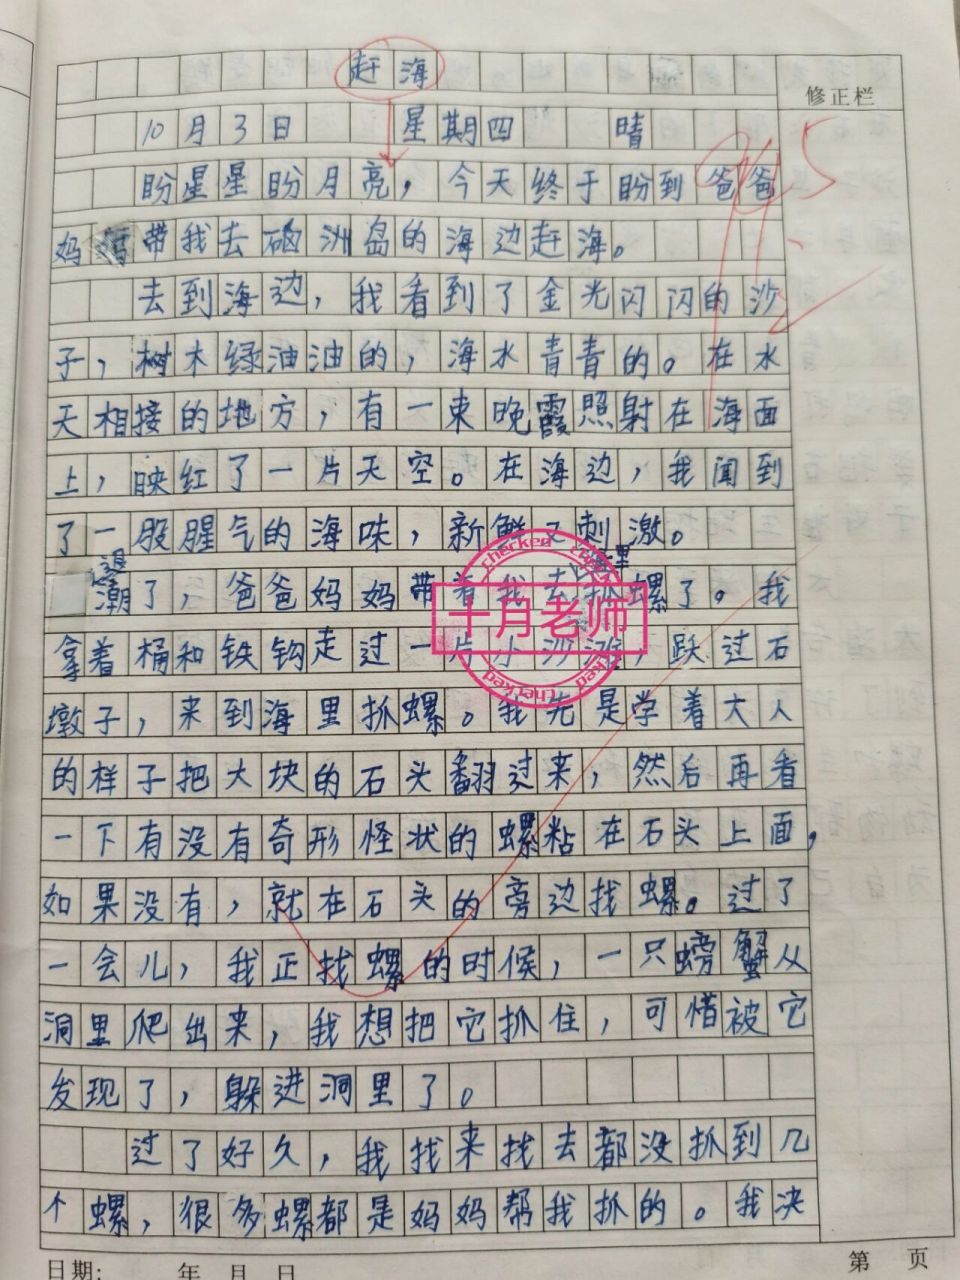 赶海
修正栏
10月3日 星期四 晴
99.5
盼星星盼月亮，今天终于盼到爸爸
妈妈带我去硇洲岛的海边赶海。
去到海边，我看到了金光闪闪的沙
子，树木绿油油的，海水青青的。在水
天相接的地方，有一束晚霞照射在海面
上，映红了一片天空。在海边，我闻到
了一股腥气的海味，新鲜又刺激。
退潮了，爸爸妈妈带着我去海里抓螺了。我
拿着桶和铁钩走过一片小沙滩，跃过石
墩子，来到海里抓螺。我先是学着大人
的样子把大块的石头翻过来，然后再看
一下有没有奇形怪状的螺粘在石头上面，
如果没有，就在石头的旁边找螺。过了
一会儿，我正找螺的时候，一只螃蟹从
洞里爬出来，我想把它抓住，可惜被它
发现了，躲进洞里了。
过了好久，我找来找去都没抓到几
个螺，很多螺都是妈妈帮我抓的。我决
cherked
十月老师
cherked
日期： 年 月 日
第 页